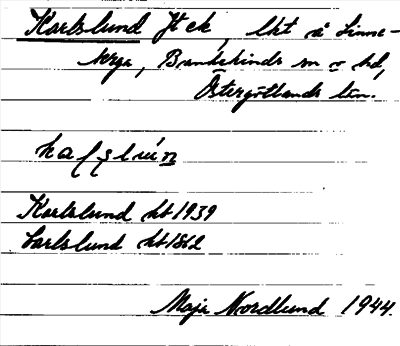 Karlslund Jt ek, lht å Linne-
berga, Bankekinds sn o hd,
Östergötlands län.
Karlslund kt 1939
Carlslund kt 1862
Maja Nordlund 1944.